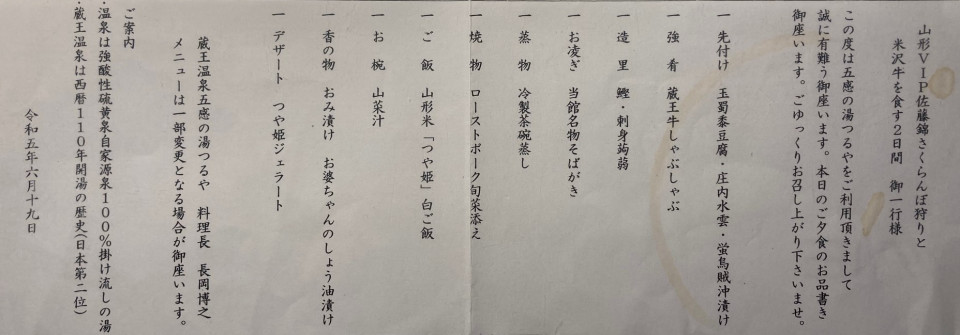 山形VIP佐藤錦さくらんぼ狩りと
米沢牛を食す2日間 御一行様
この度は五感の湯つるやをご利用頂きまして
誠に有難う御座います。本日のご夕食のお品書き
御座います。ごゆっくりお召し上がり下さいませ。
一 先付け 玉蜀黍豆腐・庄内水雲・蛍烏賊沖漬け
一 強 肴 蔵王牛しゃぶしゃぶ
一 造 里 鰹・刺身蒟蒻
一 お凌ぎ 当館名物そばがき
一 蒸 物 冷製茶碗蒸し
一 焼 物 ローストポーク旬菜添え
一 ご 飯 山形米「つや姫」白ご飯
一 お 椀 山菜汁
一 香の物 おみ漬け お婆ちゃんのしょう油漬け
一 デザート つや姫ジェラート
蔵王温泉五感の湯つるや 料理長 長岡博之
メニューは一部変更となる場合が御座います。
ご案内
・温泉は強酸性硫黄泉自家源泉100%掛け流しの湯
・蔵王温泉は西暦110年開湯の歴史(日本第二位)
令和五年六月十九日